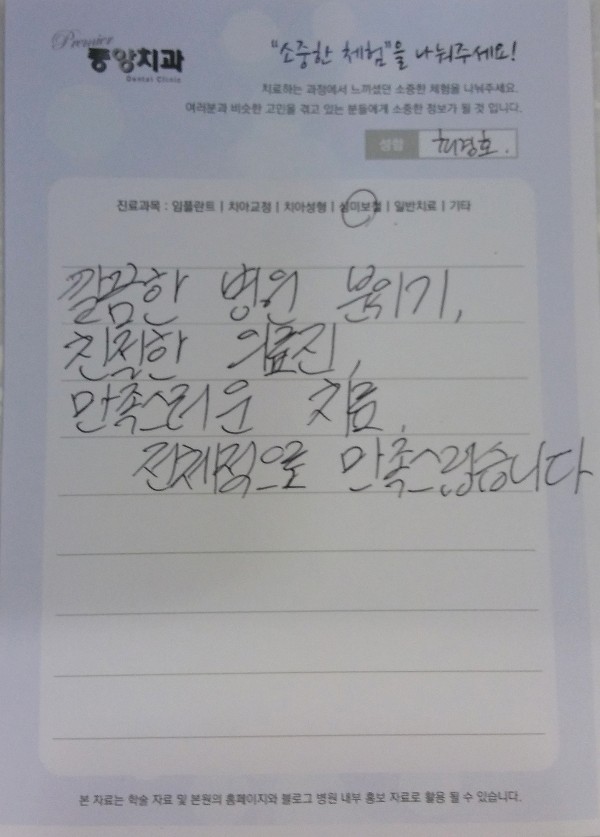 Premier
중앙치과
Dental Clinic
"소중한 체험"을 나눠주세요!
치료하는 과정에서 느끼셨던 소중한 체험을 나눠주세요.
여러분과 비슷한 고민을 겪고 있는 분들에게 소중한 정보가 될 것 입니다.
성함 최경호.
진료과목 : 임플란트 | 치아교정 | 치아성형 | 심미보철 | 일반치료 | 기타
깔끔한 병원 분위기,
친절한 의료진,
만족스러운 치료,
전체적으로 만족스럽습니다
본 자료는 학술 자료 및 본원의 홈페이지와 블로그 병원 내부 홍보 자료로 활용 될 수 있습니다.